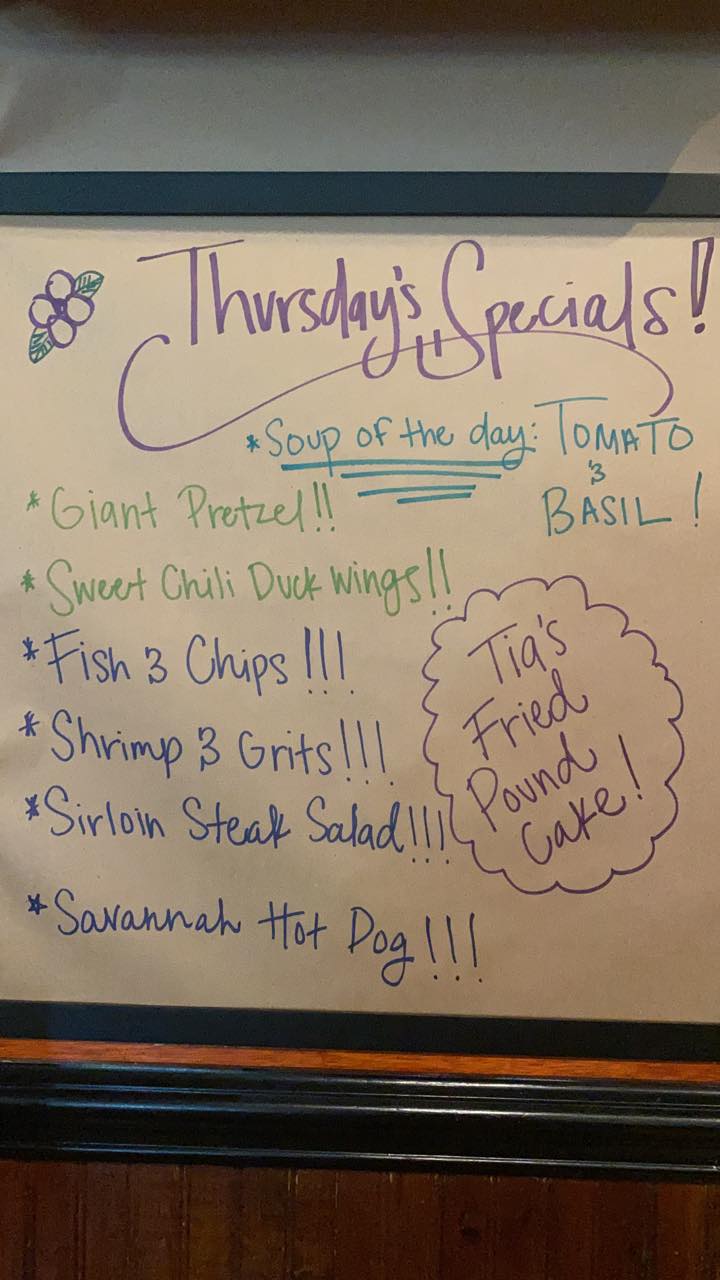 Thursday's Specials!
*Soup of the day: TOMATO
& BASIL!
*Giant Pretzel!!
*Sweet Chili Duck Wings!!
*Fish & Chips!!!
*Shrimp & Grits!!!
*Sirloin Steak Salad!!!
*Savannah Hot Dog!!!
Tia's
Fried
Pound
Cake!